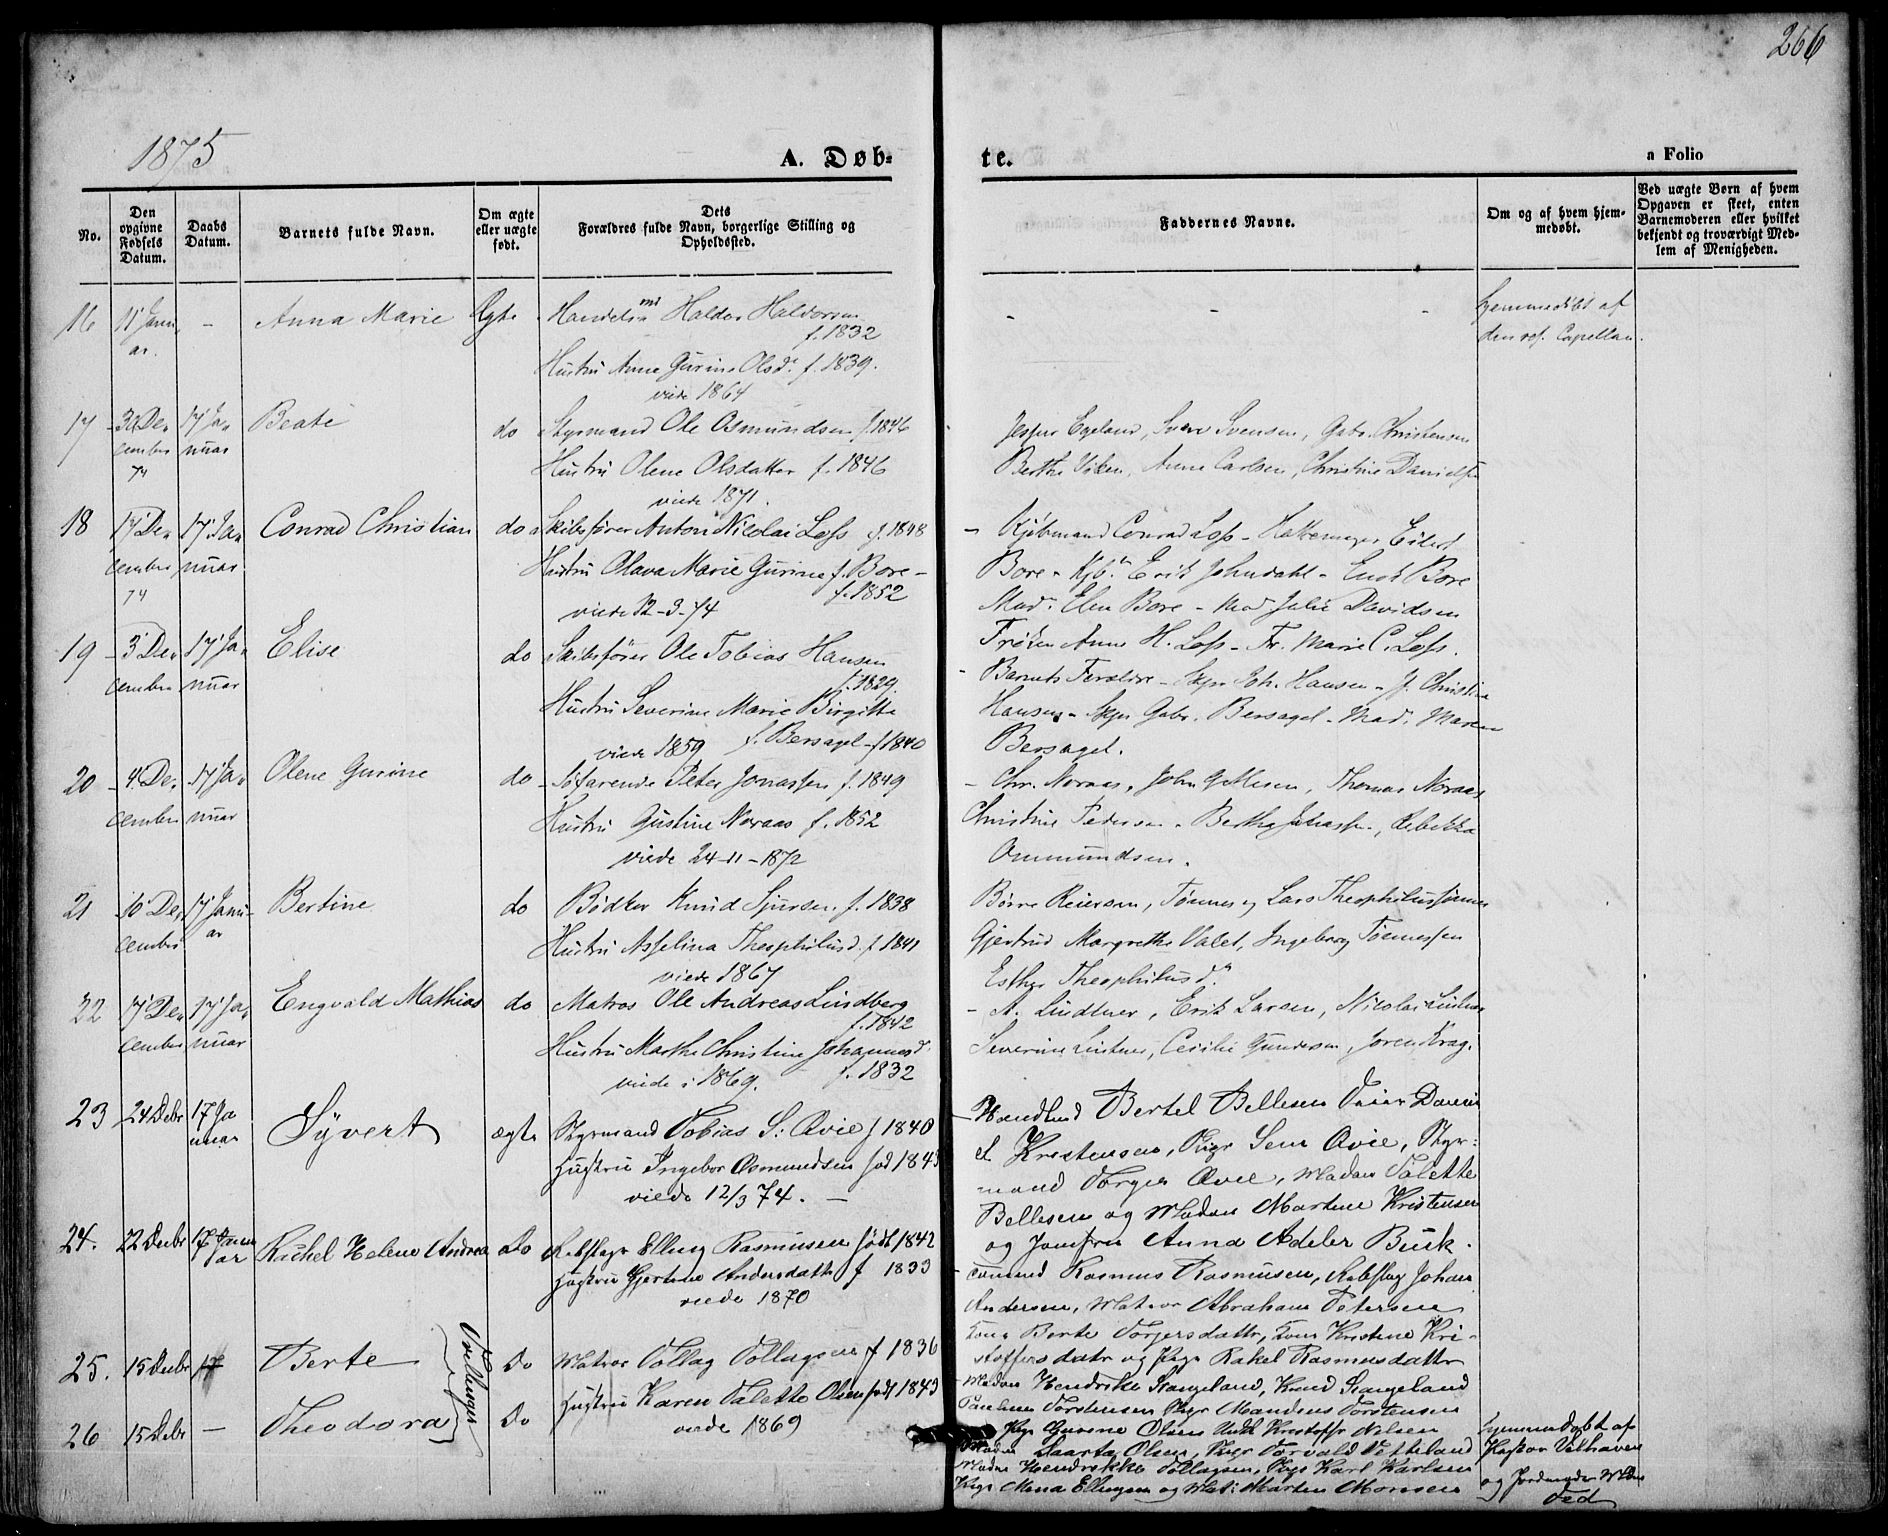 266
1875
A. Døb-
te.
a Folio
No.
Den opgivne Fødsels Datum.
Daabs Datum.
Barnets fulde Navn.
Om ægte eller uægte født.
Dets Forældres fulde Navn, borgerlige Stilling og Opholdssted.
Faddernes Navne.
Om og af hvem hjemmedøbt.
Ved uægte Børn af hvem Opgaven er skeet, enten Barnemoderen eller hvilket bekjendt og troværdigt Medlem af Menigheden.
16 11 Janu - Anna Marie Ægte Handelsmd Haldor Halvorsen
ar. f. 1832
Hustru Anne Gurine Olsd. f. 1839.
viede 1864
Hjemmedøbt af
den res. Capellan.
17 De 17 Ja Beate do Styrmand Ole Osmundsen f. 1846
cember nuar Hustru Olene Olsdatter f. 1846
74 viede 1871.
Jesper Egeland, Svend Svensen, Gabr. Christensen
Berthe Viken, Anne Carlsen, Christine Danielsen
18 17 De 17 Ja Conrad Christian do Skibsfører Anton Nicolai Loss f. 1848
cember nuar Hustru Olava Marie Gurine f. Bore -
74 f. 1852
viede 12-3-74
- Kjøbmand Conrad Loss - Hattemager Eilert
Bore - Kjb. Erik Johndahl - Enok Bore
Mad. Elen Bore - Mad Julie Davidsen
Frøken Anne H. Loss - Fr. Marie C. Loss.
19 3 De 17 Ja Elise do Skibsfører Ole Tobias Hansen
cember nuar f. 1829.
Hustru Severine Marie Birgitte
viede 1859 f. Bersagel - f 1840
- Barnets Forældre - Skpr Joh. Hansen - J. Christine
Hansen - Skpr Gabr. Bersagel - Mad. Maren
Bersagel.
20 4 De 17 Ja Olene Gurine do Søfarende Peter Jonassen f. 1849
cember nuar Hustru Gustine Noraas f. 1852
viede 24-11-1872
- Chr. Noraas, John, Thomas Noraas
Christine Pedersen - Bertha, Rebekka
Ommundsen.
21 10 De 17 Janu- Bertine do Bødker Knud Sjursen f. 1838
cember ar Hustru Asselina Theophilusd. f. 1841
viede 1867
Børre Reiersen, Tønnes og Lars Theophilussønner
Gjertrud Margrethe Valet, Ingeborg Tønnessen
Esther Theophilusd.
22 17 De 17 Ja Engvald Mathias do Matros Ole Andreas Lindberg
cember nuar f. 1842
Hustru Marthe Christine Johannesd.
viede i 1869. f. 1832
- A. Lindtner, Erik Larsen, Nicolai Lintner
Severine Lintner, Cecilie Gundersen, Joren Krag.
23 24 Debr 17 Ja Syvert ægte Styrmand Tobias S. Qvie f 1840
nuar Hustru Ingebor Osmundsen fød 1843
viede 12/3 74. -
Bertel Bellesen Daniel
Kristensen, Pige Qvie, Styr-
mand Torger Qvie, Madam Talette
Bellesen og Madam Martine Kristensen
og Jomfru Anna Adeler Buik.
24. 22 Debr 17 Januar Rakel Helene Andrea Do Rebslager Elling Rasmusen født 1842
Hustru Gjertine Andersdatter f 1833
viede 1870
Rasmus Rasmusen, Rebslag Johan
Andersen, Matros Abraham Petersen
Kone Berte Torgersdatter, Kone Kristine Kri-
stoffersdatr og Pige Rakel Rasmusdatter
25. 15 Debr 17 Berte Do Matros Tollag Tollagsen f 1836
Tvillinger
Hustru Karen Talette Olsen født 1843
26 15 Debr - Theodora Do viede 1869
Madam Hendrike Stangeland, Knud Stangeland
Torstensen Pige Torstensen
Pige Gurine Olsen Kristoffer Nilsen
Madam Saarta Olsen, Pige Torvald Vetteland
Madam Hendrikke Tollagsen, Karl Karlsen
Pige Mena Ellingsen og Mat: Marten Monsen
Hjemmedøbt af
Pastor Valhaven
og Jordmoder